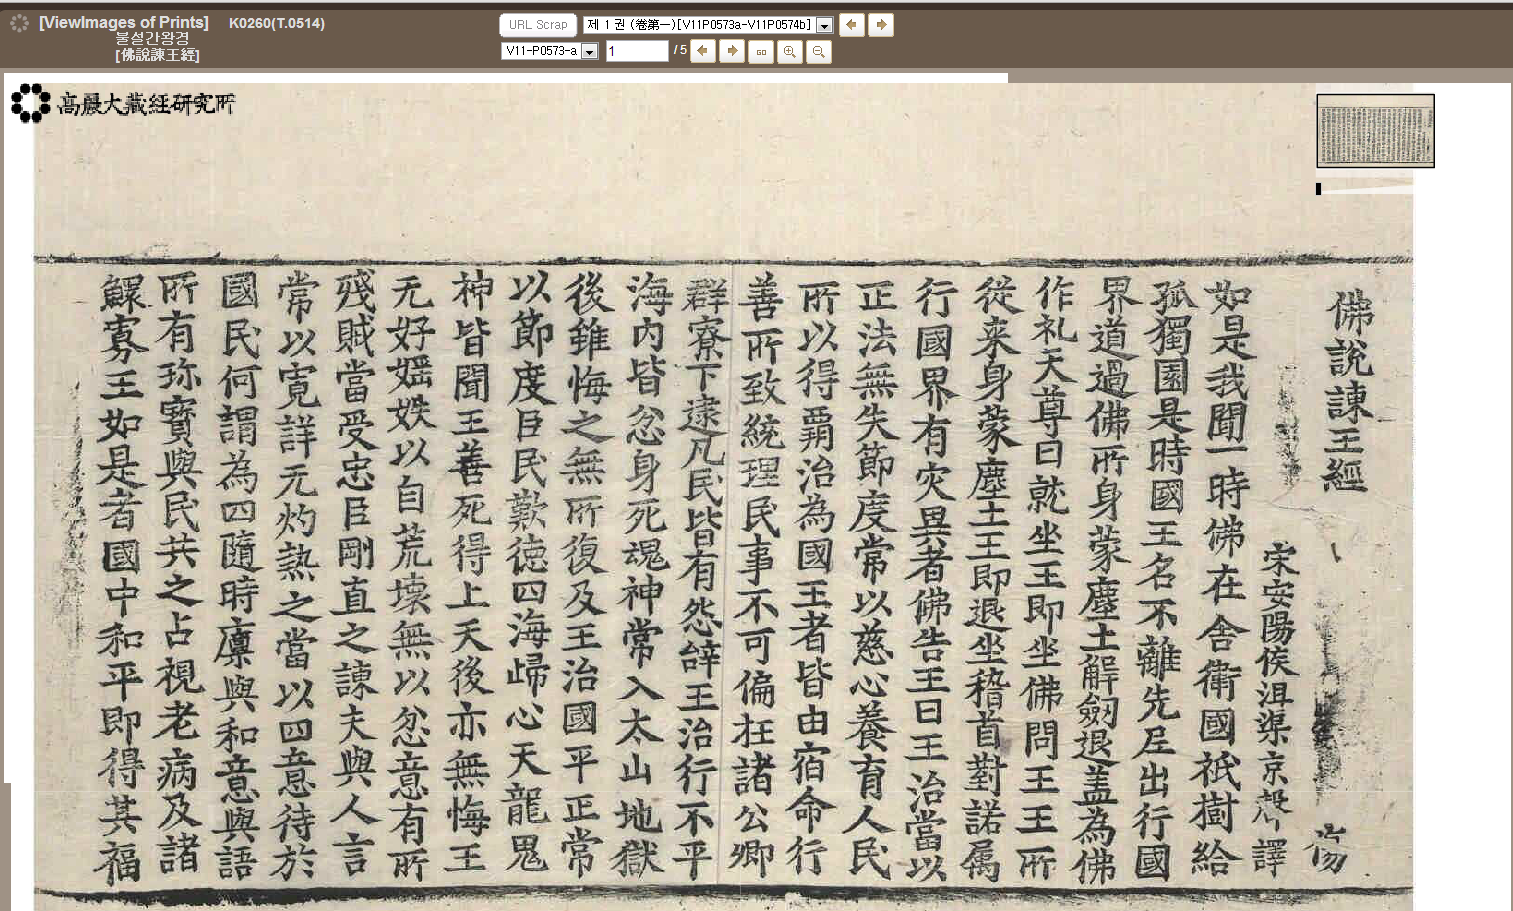 [ViewImages of Prints] K0260(T.0514)
불설간왕경
[佛說諫王經]
URL Scrap
제 1 권 (卷第一)[V11P0573a-V11P0574b]
V11-P0573-a
1
/ 5
GO
高麗大藏經硏究所
佛說諫王經
宋安陽侯沮渠京聲譯
如是我聞一時佛在舍衛國祇樹給
孤獨園是時國王名不離先尼出行國
界道過佛所身蒙塵土解劒退盖為佛
作礼天尊曰就坐王即坐佛問王王所
從来身蒙塵土王即退坐稽首對諾属
行國界有灾異者佛告王曰王治當以
正法無失節度常以慈心養育人民
所以得覇治為國王者皆由宿命行
善所致統理民事不可偏枉諸公卿
群寮下逮凡民皆有怨辞王治行不平
海内皆忿身死魂神常入太山地獄
後雖悔之無所復及王治國平正常
以節度臣民歎德四海歸心天龍鬼
神皆聞王善死得上天後亦無悔王
无好婬妷以自荒壊無以忿意有所
殘賊當受忠臣剛直之諫夫與人言
常以寛詳无灼熱之當以四意待於
國民何謂為四隨時廪與和意與語
所有珎寶與民共之占視老病及諸
鰥寡王如是者國中和平即得其福